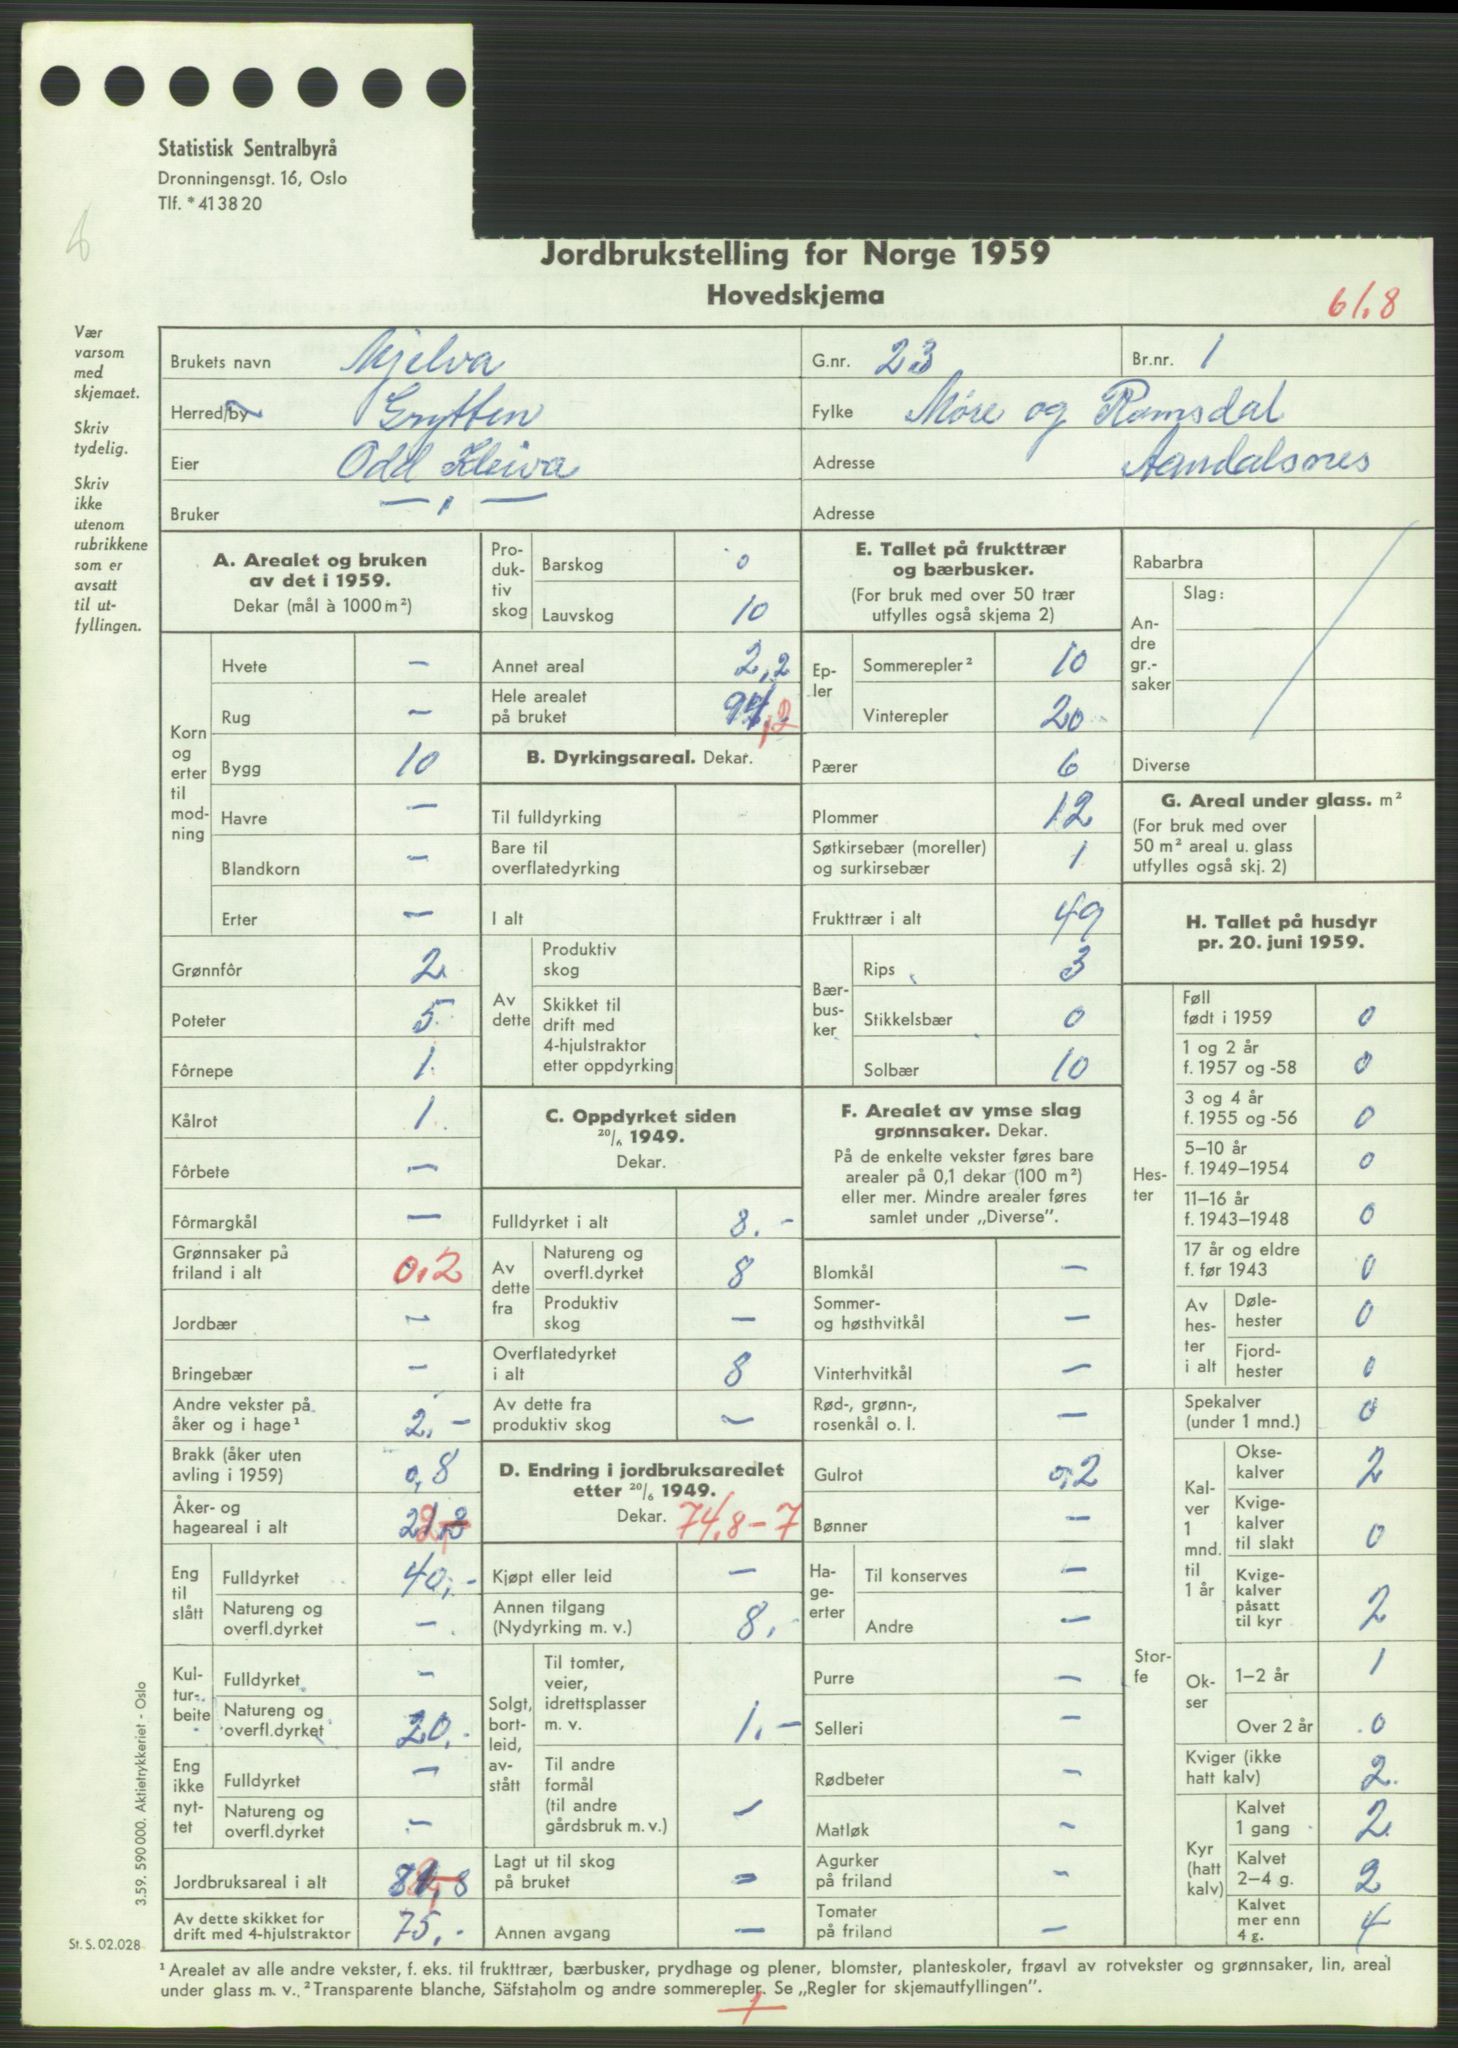 Statistisk Sentralbyrå
Dronningensgt. 16, Oslo
Tlf. * 41 38 20
6
Jordbrukstelling for Norge 1959
Hovedskjema
61.8
Vær varsom med skjemaet.
Skriv tydelig.
Skriv ikke utenom rubrikkene som er avsatt til utfyllingen.
Brukets navn Mjelva G.nr. 23 Br.nr. 1
Herred/by Grytten Fylke Møre og Romsdal
Eier Odd Kleiva Adresse Aandalsnes
Bruker — „ — Adresse
A. Arealet og bruken av det i 1959.
Dekar (mål à 1000 m²)
Korn og erter til modning
Hvete –
Rug –
Bygg 10
Havre –
Blandkorn –
Erter –
Grønnfôr 2
Poteter 5
Fôrnepe 1
Kålrot 1
Fôrbete –
Fôrmargkål –
Grønnsaker på friland i alt 0,2
Jordbær –
Bringebær –
Andre vekster på åker og i hage¹ 2,–
Brakk (åker uten avling i 1959) 0,8
Åker- og hageareal i alt
Eng til slått
Fulldyrket 40,–
Natureng og overfl.dyrket –
Kulturbeite
Fulldyrket –
Natureng og overfl.dyrket 20,-
Eng ikke nyttet
Fulldyrket –
Natureng og overfl.dyrket –
Jordbruksareal i alt
Av dette skikket for drift med 4-hjulstraktor 75,-
Produktiv skog
Barskog 0
Lauvskog 10
Annet areal 2,2
Hele arealet på bruket 94,2
B. Dyrkingsareal. Dekar.
Til fulldyrking
Bare til overflatedyrking
I alt
Av dette
Produktiv skog
Skikket til drift med 4-hjulstraktor etter oppdyrking
C. Oppdyrket siden 20/6 1949.
Dekar.
Fulldyrket i alt 8.–
Av dette fra
Natureng og overfl.dyrket 8
Produktiv skog –
Overflatedyrket i alt 8
Av dette fra produktiv skog –
D. Endring i jordbruksarealet etter 20/6 1949.
Dekar. 74,8–7
Kjøpt eller leid –
Annen tilgang (Nydyrking m. v.) 8,-
Solgt, bortleid, avstått
Til tomter, veier, idrettsplasser m. v. 1.–
Til andre formål (til andre gårdsbruk m. v.) –
Lagt ut til skog på bruket –
Annen avgang –
E. Tallet på frukttrær og bærbusker.
(For bruk med over 50 trær utfylles også skjema 2)
Epler
Sommerepler² 10
Vinterepler 20
Pærer 6
Plommer 12
Søtkirsebær (moreller) og surkirsebær 1
Frukttrær i alt 49
Bærbusker
Rips 3
Stikkelsbær 0
Solbær 10
F. Arealet av ymse slag grønnsaker. Dekar.
På de enkelte vekster føres bare arealer på 0,1 dekar (100 m²) eller mer. Mindre arealer føres samlet under „Diverse”.
Blomkål –
Sommer- og høsthvitkål –
Vinterhvitkål –
Rød-, grønn-, rosenkål o. l. –
Gulrot 0,2
Bønner –
Hageerter
Til konserves –
Andre –
Purre –
Selleri –
Rødbeter –
Matløk –
Agurker på friland –
Tomater på friland –
Rabarbra
Andre gr.-saker
Slag:
Diverse
G. Areal under glass. m²
(For bruk med over 50 m² areal u. glass utfylles også skj. 2)
H. Tallet på husdyr pr. 20. juni 1959.
Hester
Føll født i 1959 0
1 og 2 år f. 1957 og -58 0
3 og 4 år f. 1955 og -56 0
5–10 år f. 1949–1954 0
11–16 år f. 1943–1948 0
17 år og eldre f. før 1943 0
Av hester i alt
Dølehester 0
Fjordhester 0
Storfe
Spekalver (under 1 mnd.) 0
Kalver 1 mnd. til 1 år
Oksekalver 2
Kvigekalver til slakt 0
Kvigekalver påsatt til kyr 2
Okser
1–2 år 1
Over 2 år 0
Kviger (ikke hatt kalv) 2
Kyr (hatt kalv)
Kalvet 1 gang 2
Kalvet 2–4 g. 2
Kalvet mer enn 4 g. 4
3.59. 590 000. Aktietrykkeriet - Oslo
St. S. 02.028
¹ Arealet av alle andre vekster, f. eks. til frukttrær, bærbusker, prydhage og plener, blomster, planteskoler, frøavl av rotvekster og grønnsaker, lin, areal
under glass m. v. ² Transparente blanche, Säfstaholm og andre sommerepler. Se „Regler for skjemautfyllingen”.
1